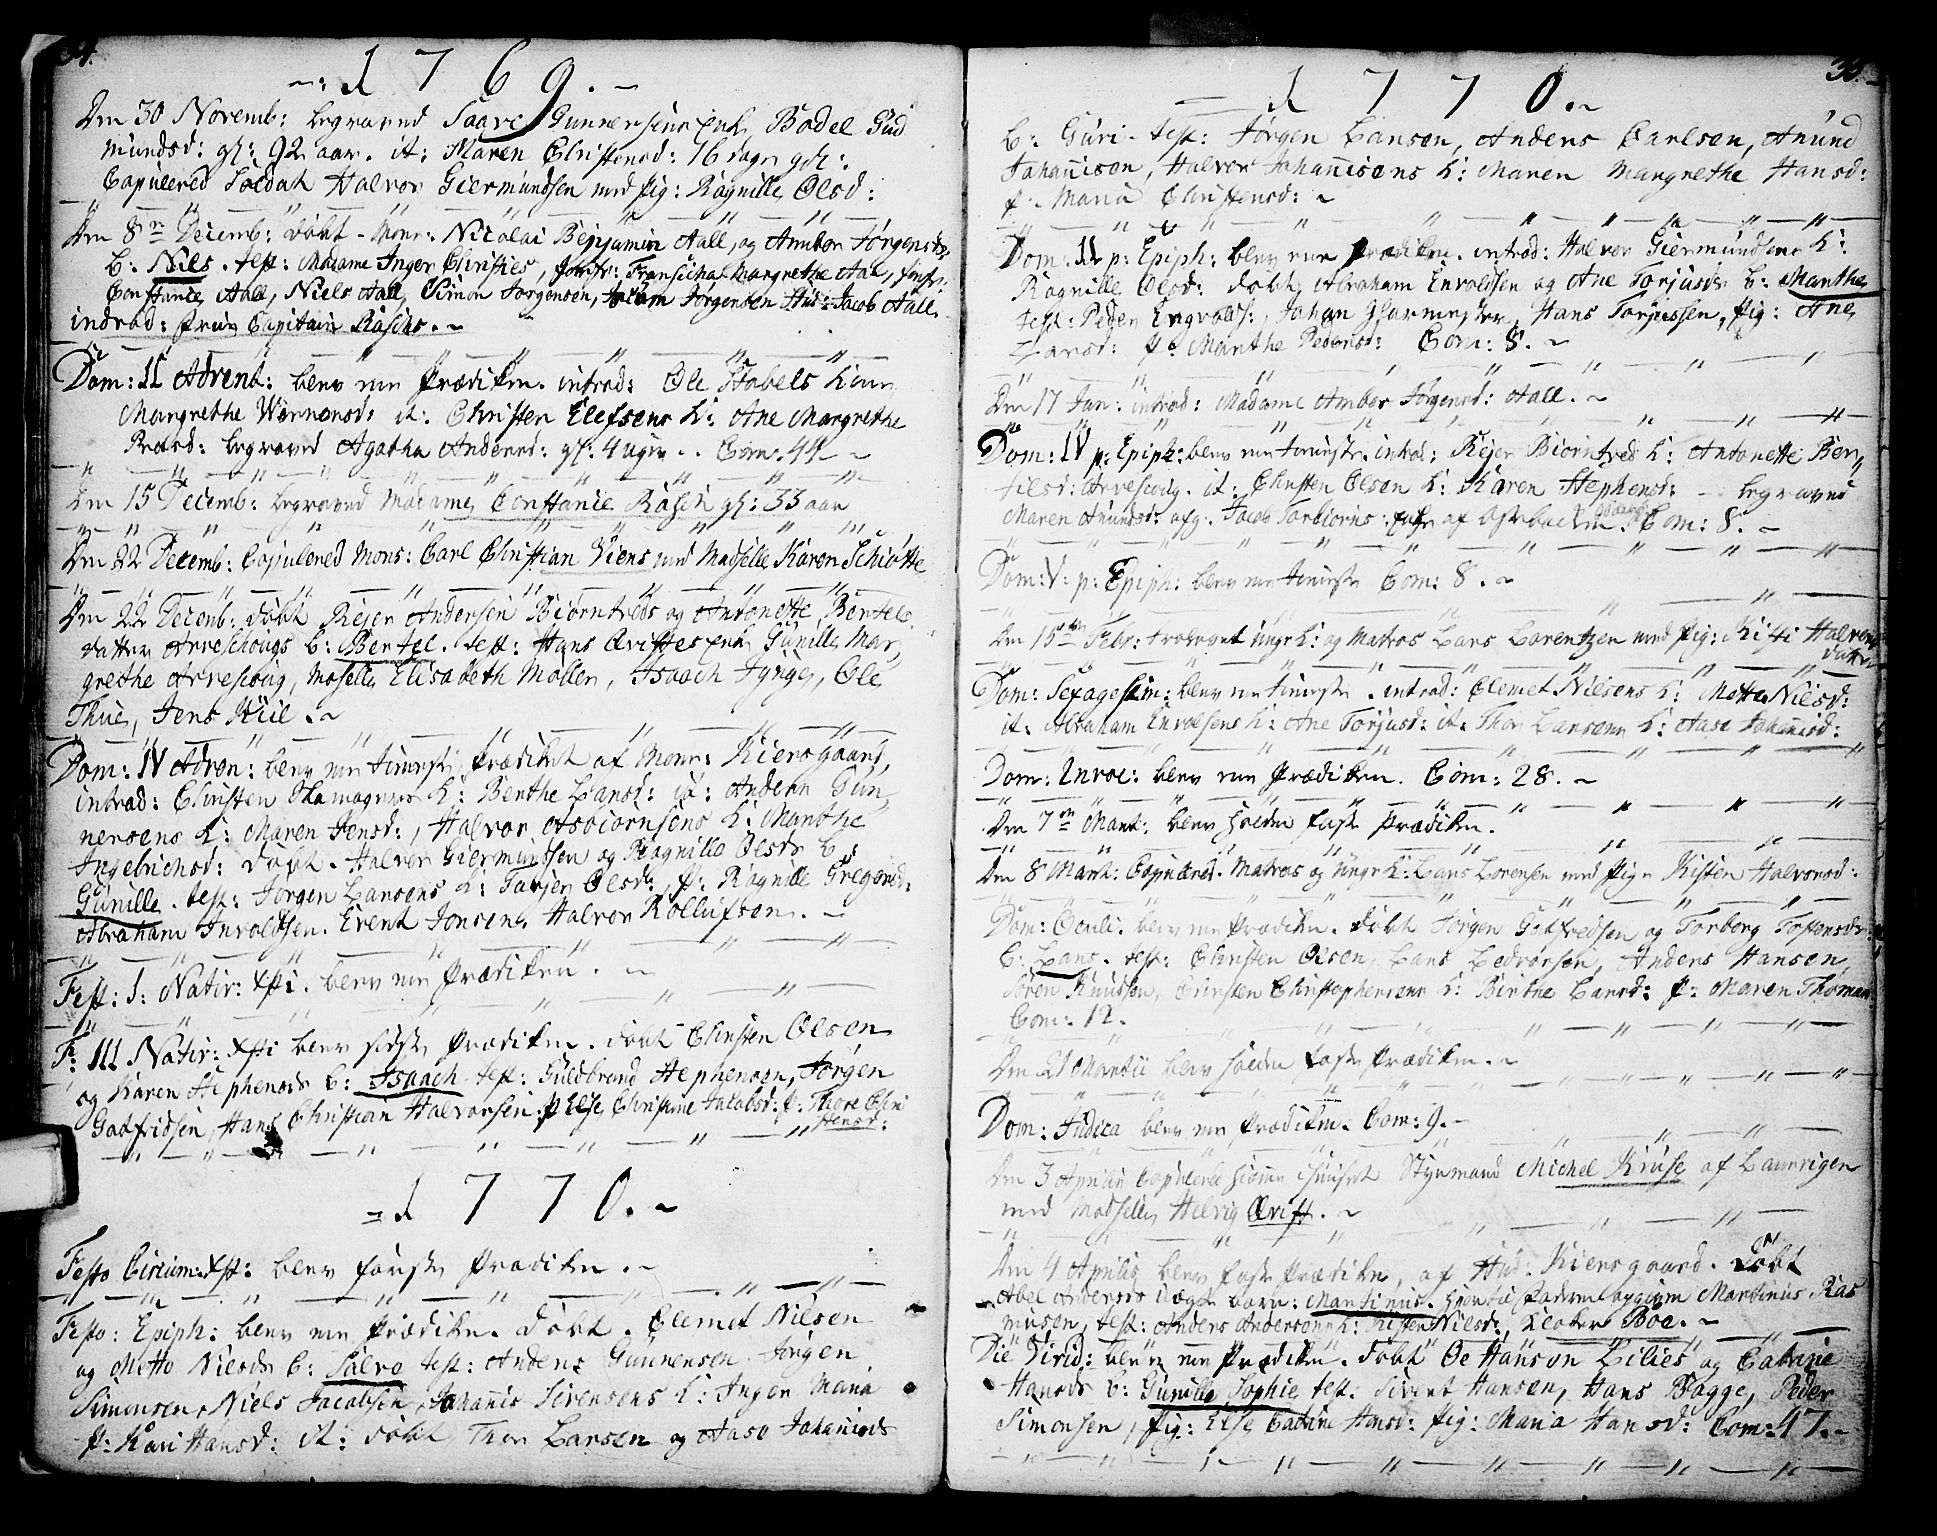 34.
-: 1769. -
Den 30 Novemb: begraved Saare Gunnersens Enke Bodel Gud
mundsd: gl: 92 aar. it: Maren Christensd: 16 dage gl:
Copulered Soldat Halvor Giermundsen med Pig: Ragnille Olsd:
Den 8de Decemb: døbt Monr: Nicolai Benjamin Aall, og Amber Jørgensds
b: Niels. test: Madame Inger Christies, Jomfr: Fransischa Margrethe Aal, Jomfr:
Constance Aall, Niels Aall, Simon Jørgensen, Jørgensen Stud: Jacob Aall.
introd: Frue Capitain Raschs. -
Dom: II Advent: blev een Prædiken. introd: Ole Stabels Kone
Margrethe Wernersd: it: Christen Elefsens K: Ane Margrethe
begraved Agatha Andersd: gl: 4 uger. Com: 44 -
Den 15 Decemb: begraved Madame Constance Rasch gl: 33 aar
Den 22 Decemb: Copulered Mons: Carl Christian Viens med Madselle Karen Schiøtte
Den 22 Decemb: døbt Rejer Andersen Biørntveds og Antonette Bertels
datter Arveschougs b: Bertel. test: Hans Ørifties Enke Gunille Mar
grethe Arveschoug, Mselle Elisabeth Møller, Isaach Jynge, Ole
Thue, Jens Kiil. -
Dom: IV Adven: blev een Tieneste Prædiket af Monr: Kiersgaard,
introd: Christen Skamagers K: Berthe Larsd: it: Anders Gun
nersens K: Maren Jensd:, Halvor Asbiørnsens K: Marthe
Ingebrichsd: døbt. Halvor Giermundsen og Ragnille Olsds b:
Gunille. test: Jørgen Larsens K: Torjer Olsd:, P: Ragnille Gregersd:
Abraham Involdsen. Event Jonsen, Halvor Rollufsen. -
Fest: I: Nativ: Xsti. blev een Prædiken. -
F: III Nativ: Xsti blev sidste Prædiken. døbt Christen Olsen
og Karen Stephensds b: Isaach test: Guldbrand Stephensen, Jørgen
Gotfridsen, Hans Christian Halvorsen. P: Else Christine Jacobsd: P: Thore Chri
stensd:
= 1770. -
Festo Circum: Xst: blev første Prædiken. -
Festo: Epiph: blev een Prædiken. Døbt. Clemet Nilsen
og Mette Nilsds b: Salve test: Anders Gunnersen Jørgen
Simonsen, Niels Jacobsen, Johannis Sivensens K: Inger Maria
P: Kari Hansd: it: døbt Thor Larsen og Aase Johannisds
35.
= 1770. -
b: Guri. test: Jørgen Larsen, Anders Carlsen, Anund
Johannisen, Halvor Johannisens K: Maren Margrethe Hansd:
P: Maria Christensd: -
Dom: II p: Epiph: blev een Prædiken. introd: Halvor Giermundsens K:
Ragnille Olsd: døbt Abraham Envoldsen og Ane Torjusds b: Marthe
test: Peder Engvolds:, Johan Glarmester, Hans Torjussen, Pig: Ane
Larsd: P: Marthe Pedersd: Com: 8. -
Den 17 Jan: introd: Madame Amber Jørgensd: Aall. -
Dom: IV p: Epiph: blev een Tieneste. introd: Rejer Biørntved K: Antonette Ber
tilsd: Arveschoug. it: Christen Olsen K: Karen Stephensd: - begraved
Maren Anundsd: afg: Jacob Torbiørns: Enke af Østebacken. Com: 8. -
Dom: V: p: Epiph: blev een Tieneste Com: 8. -
Den 15de Febr: trolovet ungk: og Matros Lars Larentzen med Pig: Kisti Halvors
datter
Dom: Sexagesim: blev een Tieneste. introd: Clemet Nilsens K: Mette Nilsd:
it: Abraham Envolsens K: Ane Torjusd: it: Thor Larsens K: Aase Johannisd:
Dom: Invoc: blev een Prædiken. Com: 28. -
Den 7de Mart: blev holden faste Prædiken.
Den 8 Mart: Copulered. Matros og Ungk: Lars Lorensen med Pig: Kisten Halvorsd:
Dom: Oculi. blev een Prædiken. døbt Jørgen Gotfredsen og Torborg Tostensds
b: Lars. test: Christen Olsen, Lars Ledvorsen, Anders Hansen
Søren Knussen, Christen Christophersens K: Birthe Larsd: P: Maren Thomæ
Com: 12.
Den 21 Martii blev holden faste Prædiken. -
Dom: Judica blev een Prædiken. Com: 9. -
Den 3 Aprilis Copulered hiemme i Huuset Styrmand Michel Kruse af Laurvigen
med Madselle Helvig Ørift. -
Den 4 Aprilis blev faste Prædiken, af Stud: Kiersgaard. Døbt
Abel Andersds uægte barn: Martinus. Faderen Martinus Ras
musen, test: Anders Andersens K: Kisten Nilsd: Boe. -
Die Virid: blev een Prædiken. Døbt Ole Hanson Lilies og Catrine
Hansds b: Gunille Sophie test. Sivert Hansen, Hans Bagge, Peder
Simonsen, Pig: Else Catrine Hansd: Pig: Maria Hansd: Com: 47. -